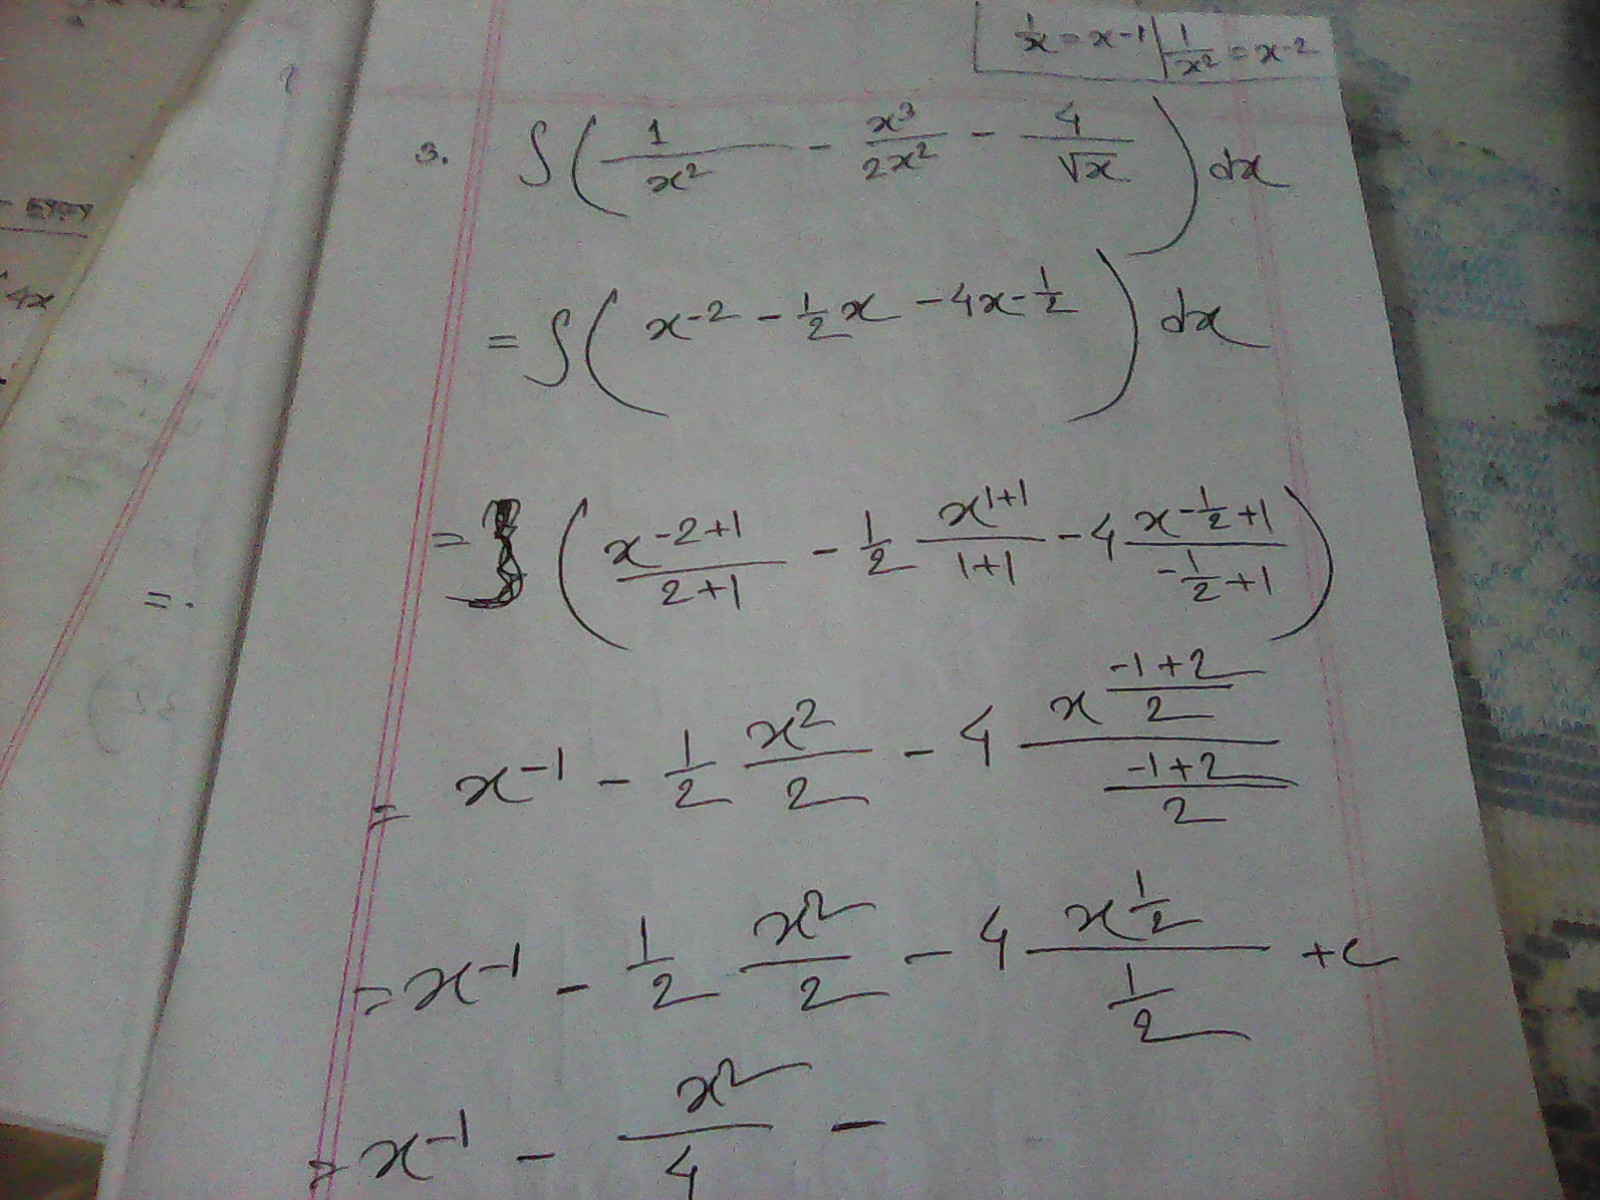 1/x = x-1 | 1/x² = x-2
3. ∫ ( 1/x² - x³/2x² - 4/√x ) dx
= ∫ ( x-2 - 1/2 x - 4x-1/2 ) dx
= ( x^(-2+1)/(2+1) - 1/2 x^(1+1)/(1+1) - 4 x^(-1/2+1)/(-1/2+1) )
= x^-1 - 1/2 x²/2 - 4 x^((-1+2)/2)/((-1+2)/2)
= x^-1 - 1/2 x²/2 - 4 x^(1/2)/(1/2) + c
= x^-1 - x²/4 -
4x
= .